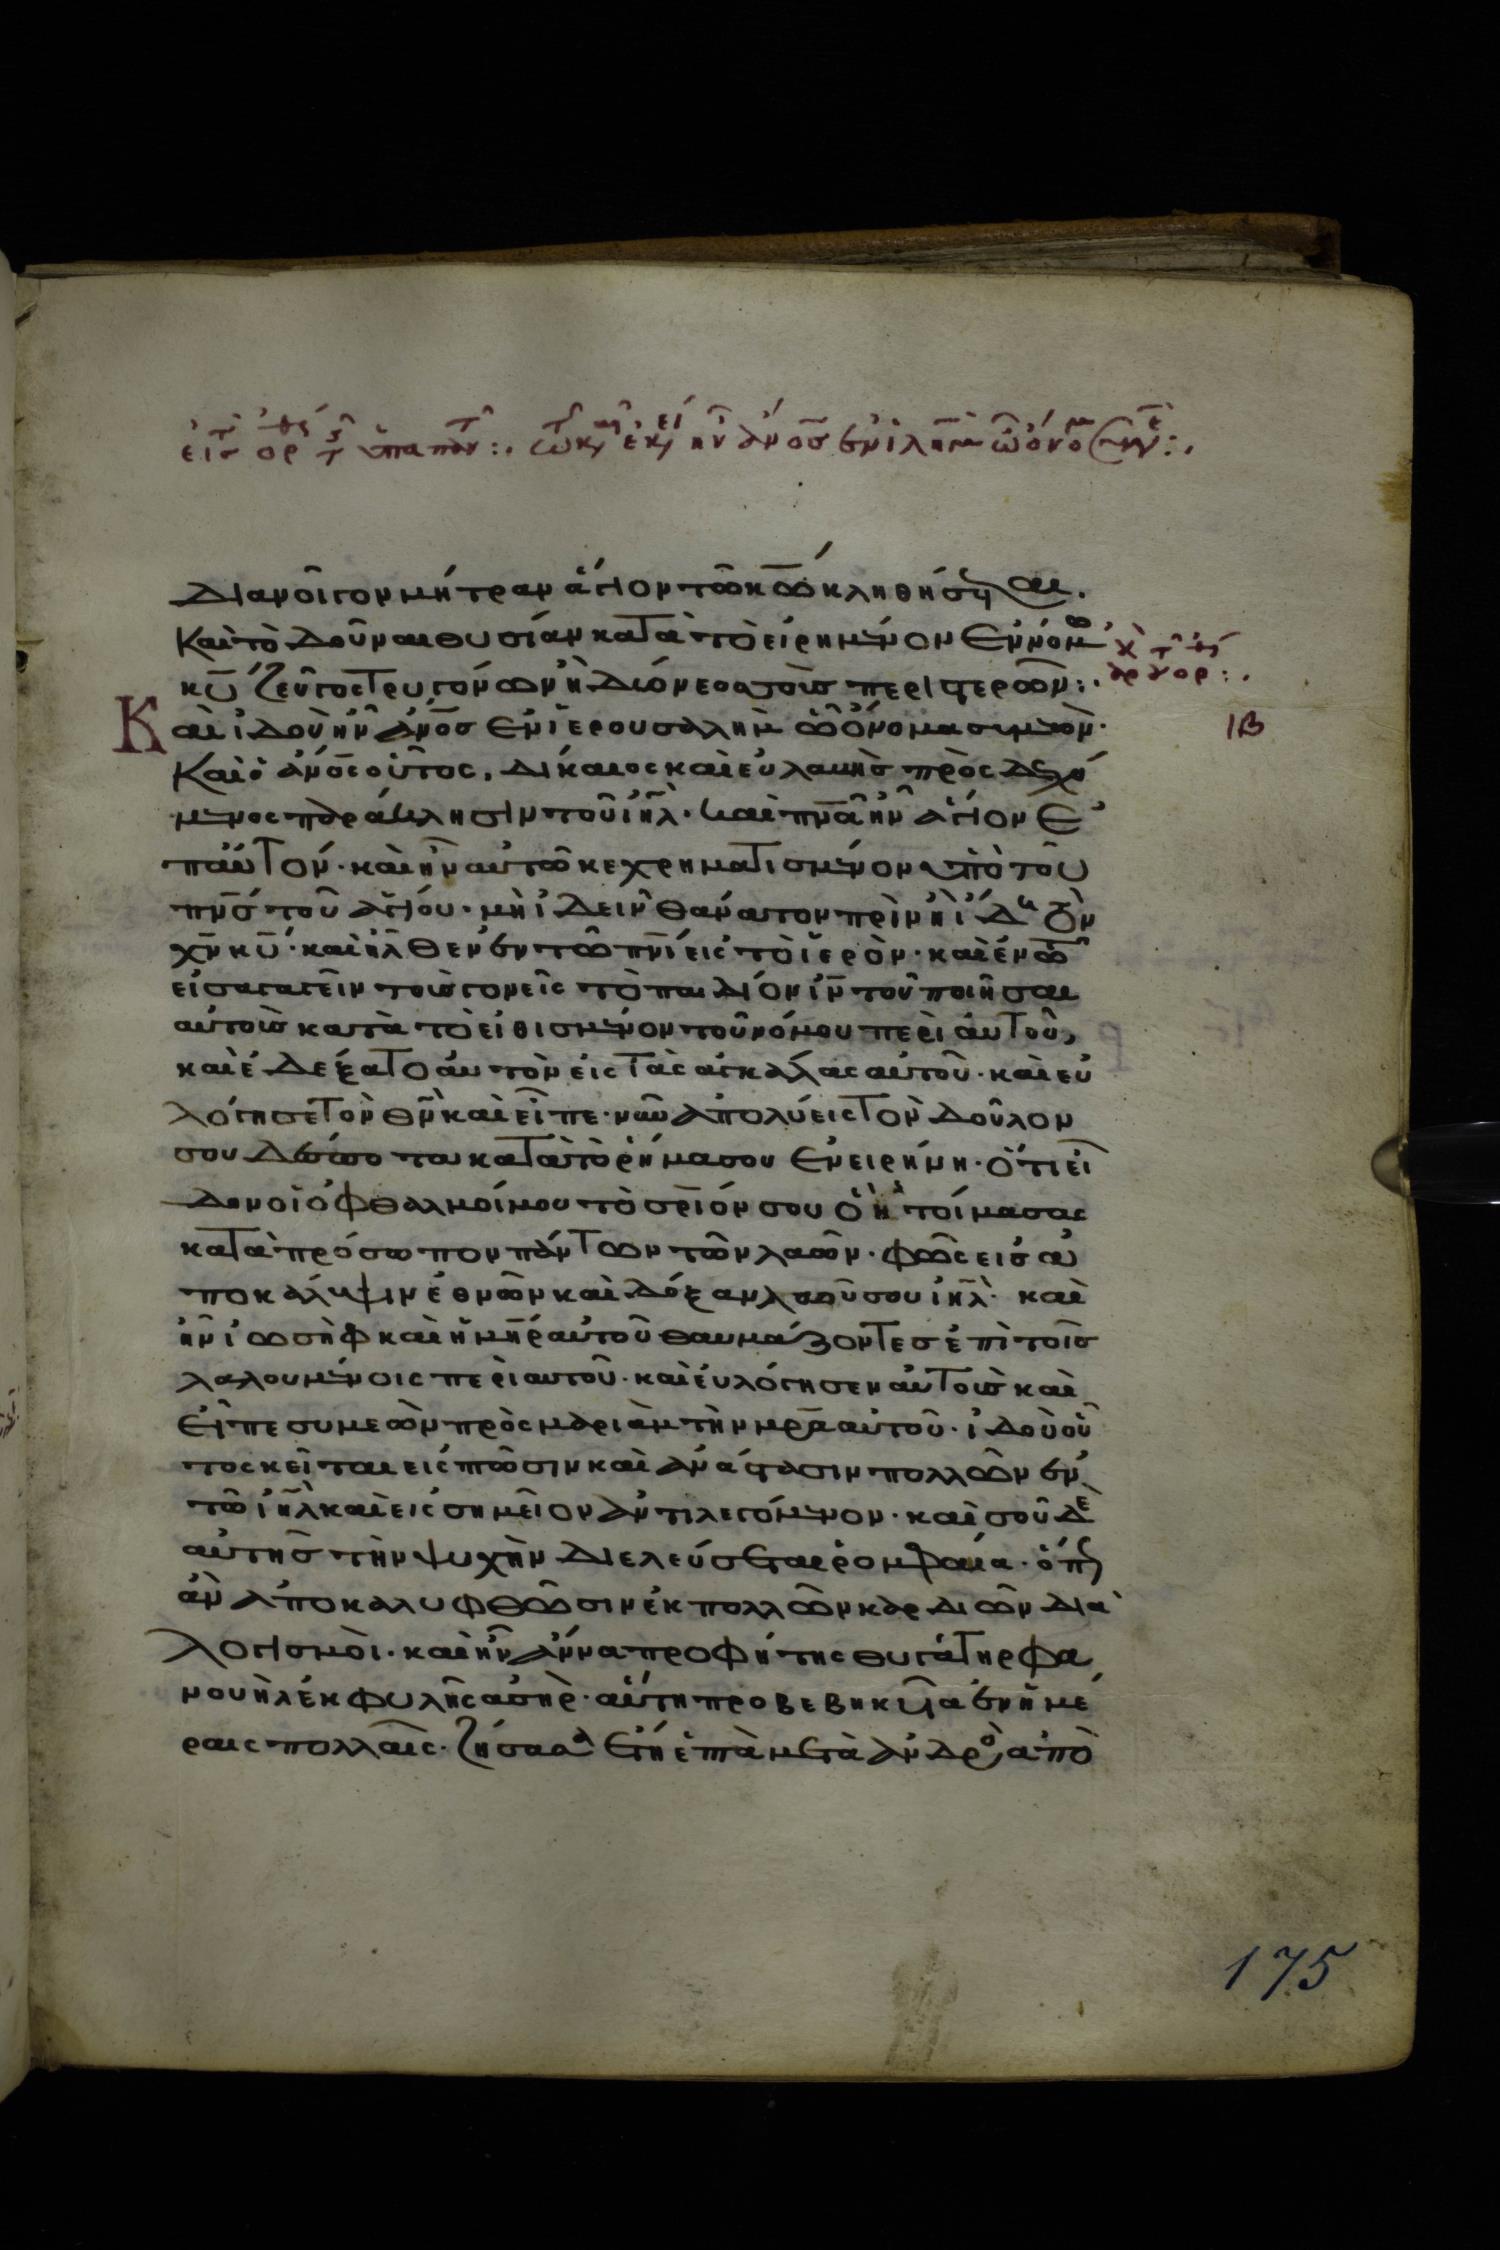 διανοῖγον μήτραν ἅγιον τῶ κω κληθήσεται.
Καὶ τὸ δοῦναι θυσίαν κατὰ τὸ εἰρημένον ἐν νόμω
κυ ζεῦγος τρυγόνων ἢ δύο νεοσσοὺς περιστερῶν:·
Καὶ ἰδοὺ ἦν ἄνος ἐν ἱερουσαλὴμ ὧ ὄνομα συμεὼν·
ιβ
Καὶ ὁ ἄνος οὗτος, δίκαιος καὶ εὐλαβὴς προσδεχό
μενος παράκλησιν τοῦ ιηλ· καὶ πνα ἦν ἅγιον ἐ
π αὐτόν· καὶ ἦν αὐτῶ κεχρηματισμένον ὑπὸ τοῦ
πνς τοῦ ἁγίου· μὴ ἰδεῖν θάνατον πρὶν ἢ ἴδη τὸν
χν κυ· καὶ ἦλθεν ἐν τῶ πνι εἰς τὸ ἱερὸν· καὶ ἐν τῶ
εἰσαγαγεῖν τοὺς γονεῖς τὸ παιδίον ιν τοῦ ποιῆσαι
αὐτοὺς κατὰ τὸ εἰθισμένον τοῦ νόμου περὶ αὐτοῦ,
καὶ ἐδέξατο αὐτὸν εἰς τὰς ἀγκάλας αὐτοῦ· καὶ εὐ
λόγησε τὸν θν καὶ εἶπε· νῦν ἀπολύεις τὸν δοῦλον
σου δέσποτα κατὰ τὸ ῥῆμα σου ἐν εἰρήνη· ὅτι εἶ
δον οἱ ὀφθαλμοί μου τὸ σριόν σου ὃ ἡτοίμασας
κατὰ πρόσωπον πάντων τῶν λαῶν· φῶς εἰς ἀ
ποκάλυψιν ἐθνῶν καὶ δόξαν λαοῦ σου ιηλ· καὶ
ἦν ἰωσὴφ καὶ ἡ μηρ αὐτοῦ θαυμάζοντες ἐπὶ τοῖς
λαλουμένοις περὶ αὐτοῦ· καὶ εὐλόγησεν αὐτοὺς καὶ
εἶπε συμεὼν πρὸς μαριὰμ τὴν μρα αὐτοῦ· ἰδοὺ οὗ
τος κεῖται εἰς πτῶσιν καὶ ἀνάστασιν πολλῶν ἐν
τῶ ιηλ καὶ εἰς σημεῖον ἀντιλεγόμενον· καὶ σοῦ δὲ
αὐτῆς τὴν ψυχὴν διελεύσεται ῥομφαία· ὅπως
ἂν ἀποκαλυφθῶσιν ἐκ πολλῶν καρδιῶν δια
λογισμοὶ· καὶ ἦν ἄννα προφήτης θυγάτηρ φα
νουὴλ ἐκ φυλῆς ἀσὴρ· αὕτη προβεβηκυῖα ἐν ἡμέ
ραις πολλαῖς· ζήσασα ἔτη ἑπτὰ μετὰ ἀνδρὸς ἀπὸ
175